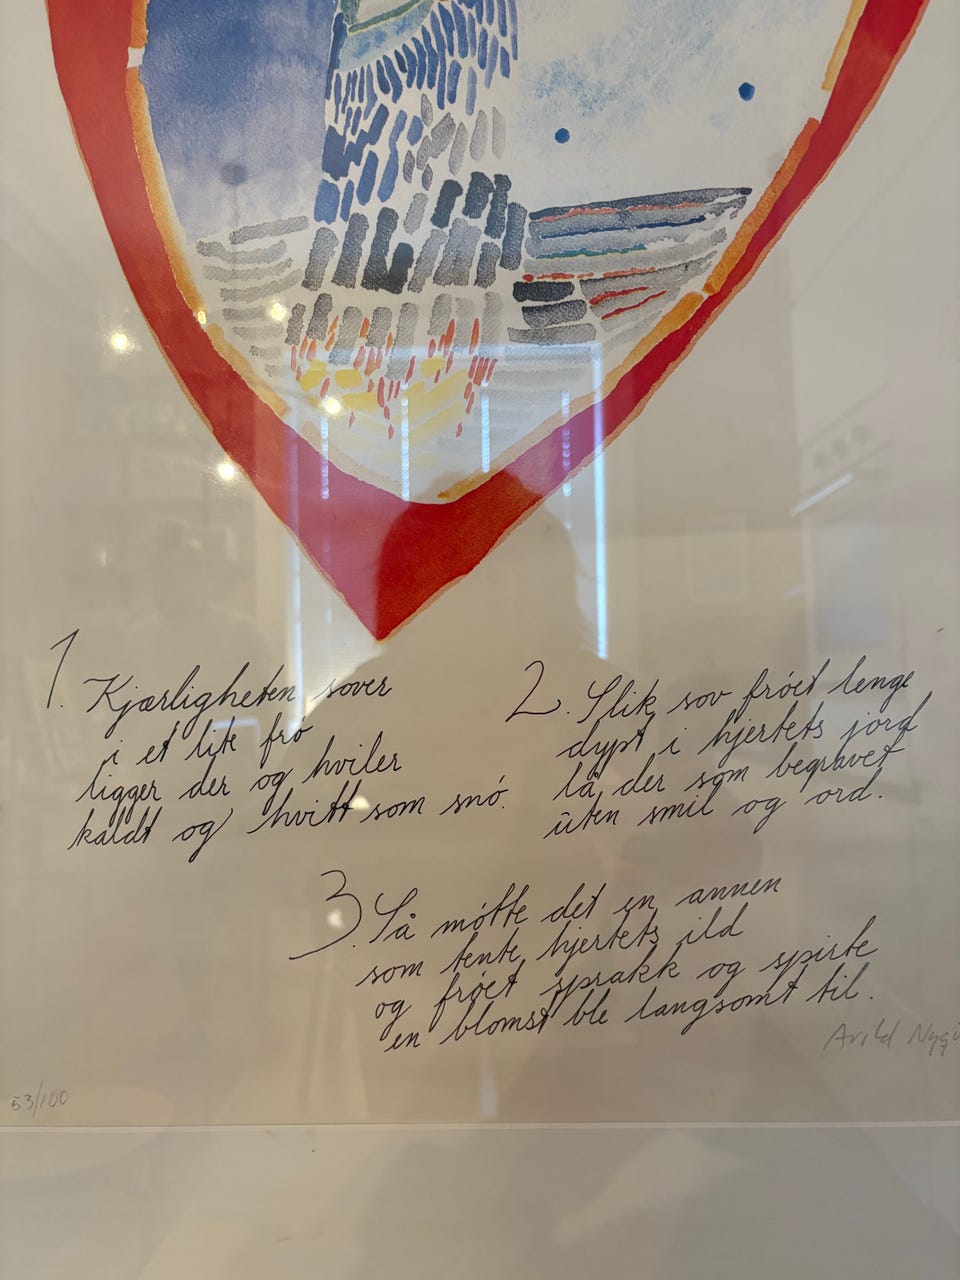 1. Kjærligheten sover
i et lite frø
ligger der og hviler
kaldt og hvitt som snø.
2. Slik sov frøet lenge
dypt i hjertets jord
lå der som begravet
uten smil og ord.
3. Så møtte det en annen
som tente hjertets ild
og frøet sprakk og spirte
en blomst ble langsomt til.
Arild
53/100